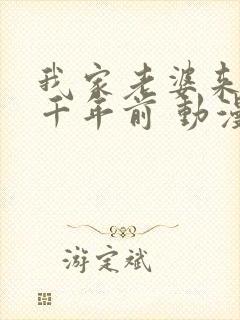 我家老婆来
千年前 動漫
游定斌